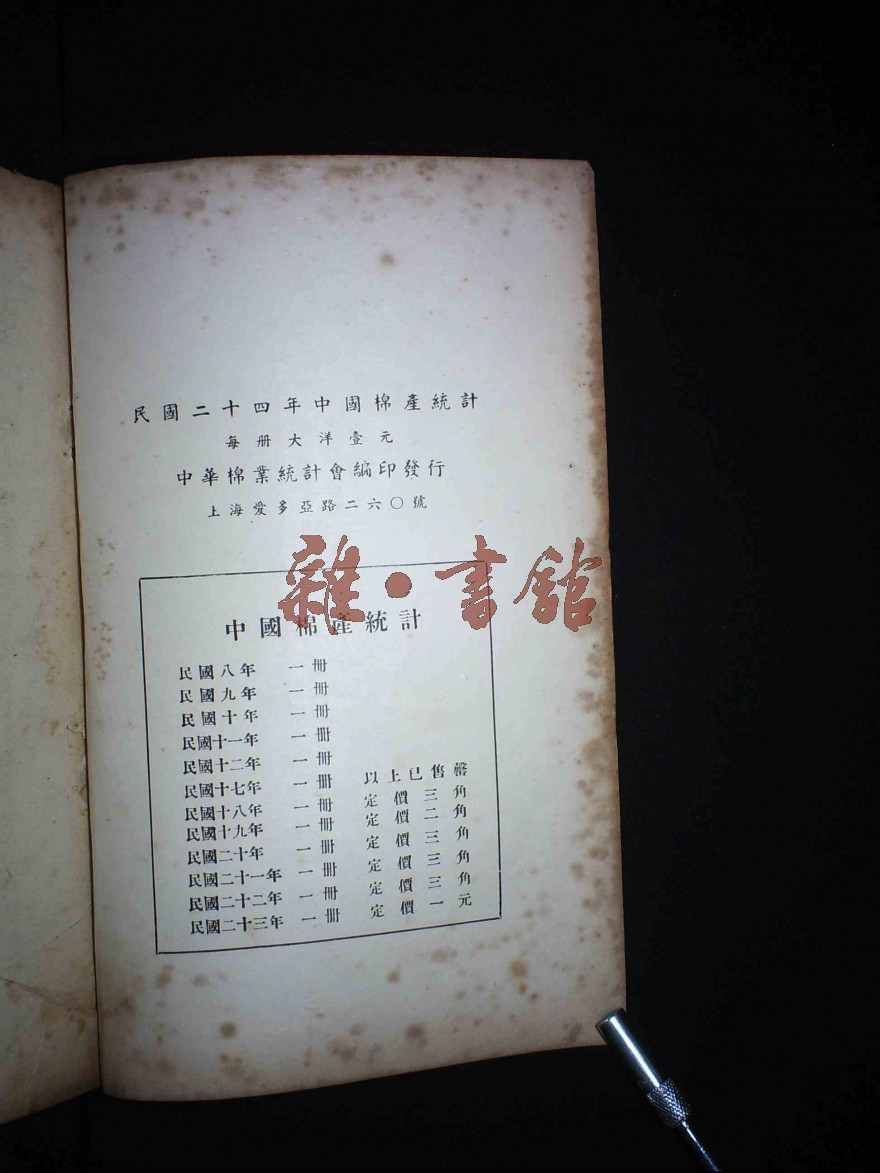 民國二十四年中國棉產統計
每冊大洋壹元
中華棉業統計會編印發行
上海愛多亞路二六〇號
雜·書館
中國棉產統計
民國八年 一冊
民國九年 一冊
民國十年 一冊
民國十一年 一冊
民國十二年 一冊
民國十七年 一冊 以上已售罄
民國十八年 一冊 定價三角
民國十九年 一冊 定價二角
民國二十年 一冊 定價三角
民國二十一年 一冊 定價三角
民國二十二年 一冊 定價三角
民國二十三年 一冊 定價一元